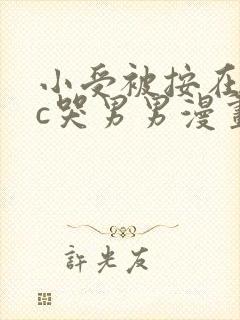 小受被按在
c哭男男漫畫
許光友